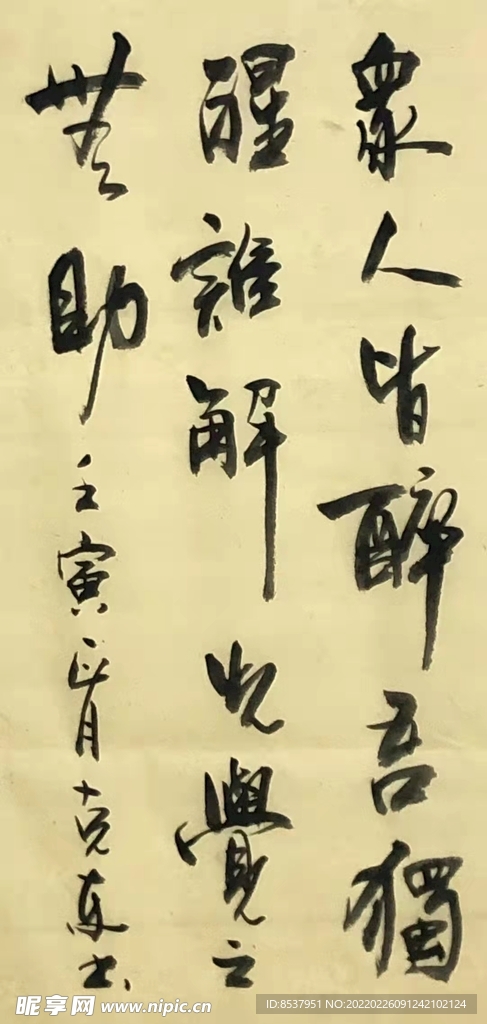 眾人皆醉吾獨
醒誰解先覺之
無助 壬寅正月克东书
昵享网 www.nipic.cn
ID:8537951 NO:20220226091242102124